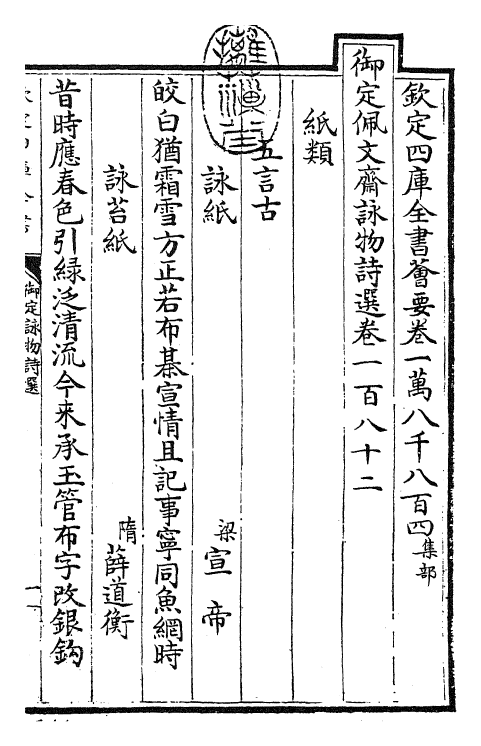 欽定四庫全書薈要卷一萬八千八百四集部
御定佩文齋詠物詩選卷一百八十二
紙類
五言古
詠紙 梁宣帝
皎白猶霜雪方正若布棊宣情且記事寧同魚網時
詠苔紙 隋薛道衡
昔時應春色引緑泛清流今来承玉管布字改銀鈎
御定詠物詩選